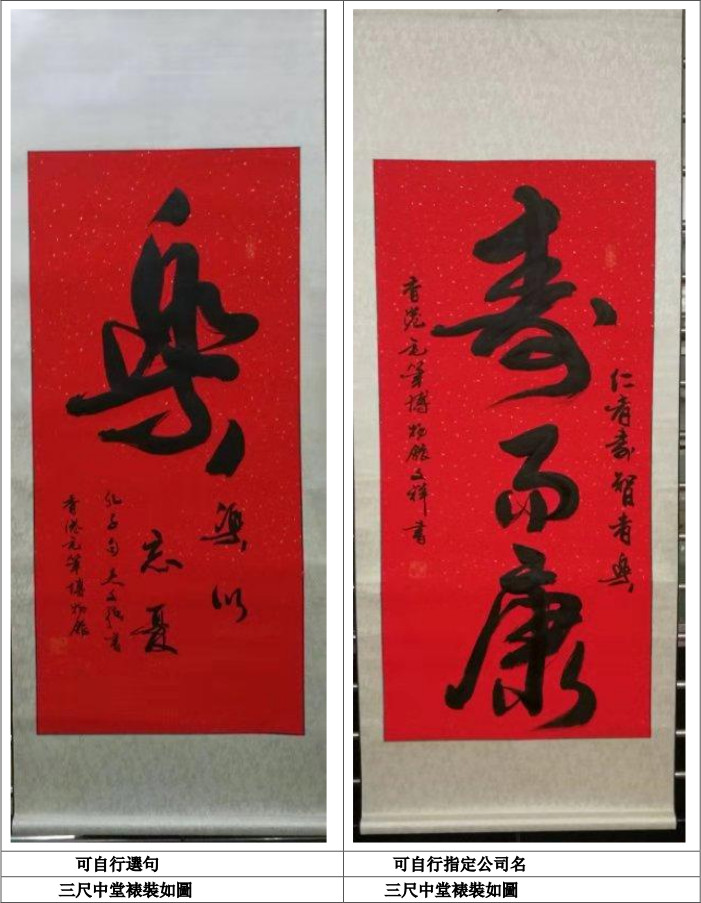 樂
樂以
忘憂
孔子句
香港毛筆博物館
仁者壽智者樂
壽而康
香港毛筆博物館文祥書
可自行選句
可自行指定公司名
三尺中堂裱裝如圖
三尺中堂裱裝如圖